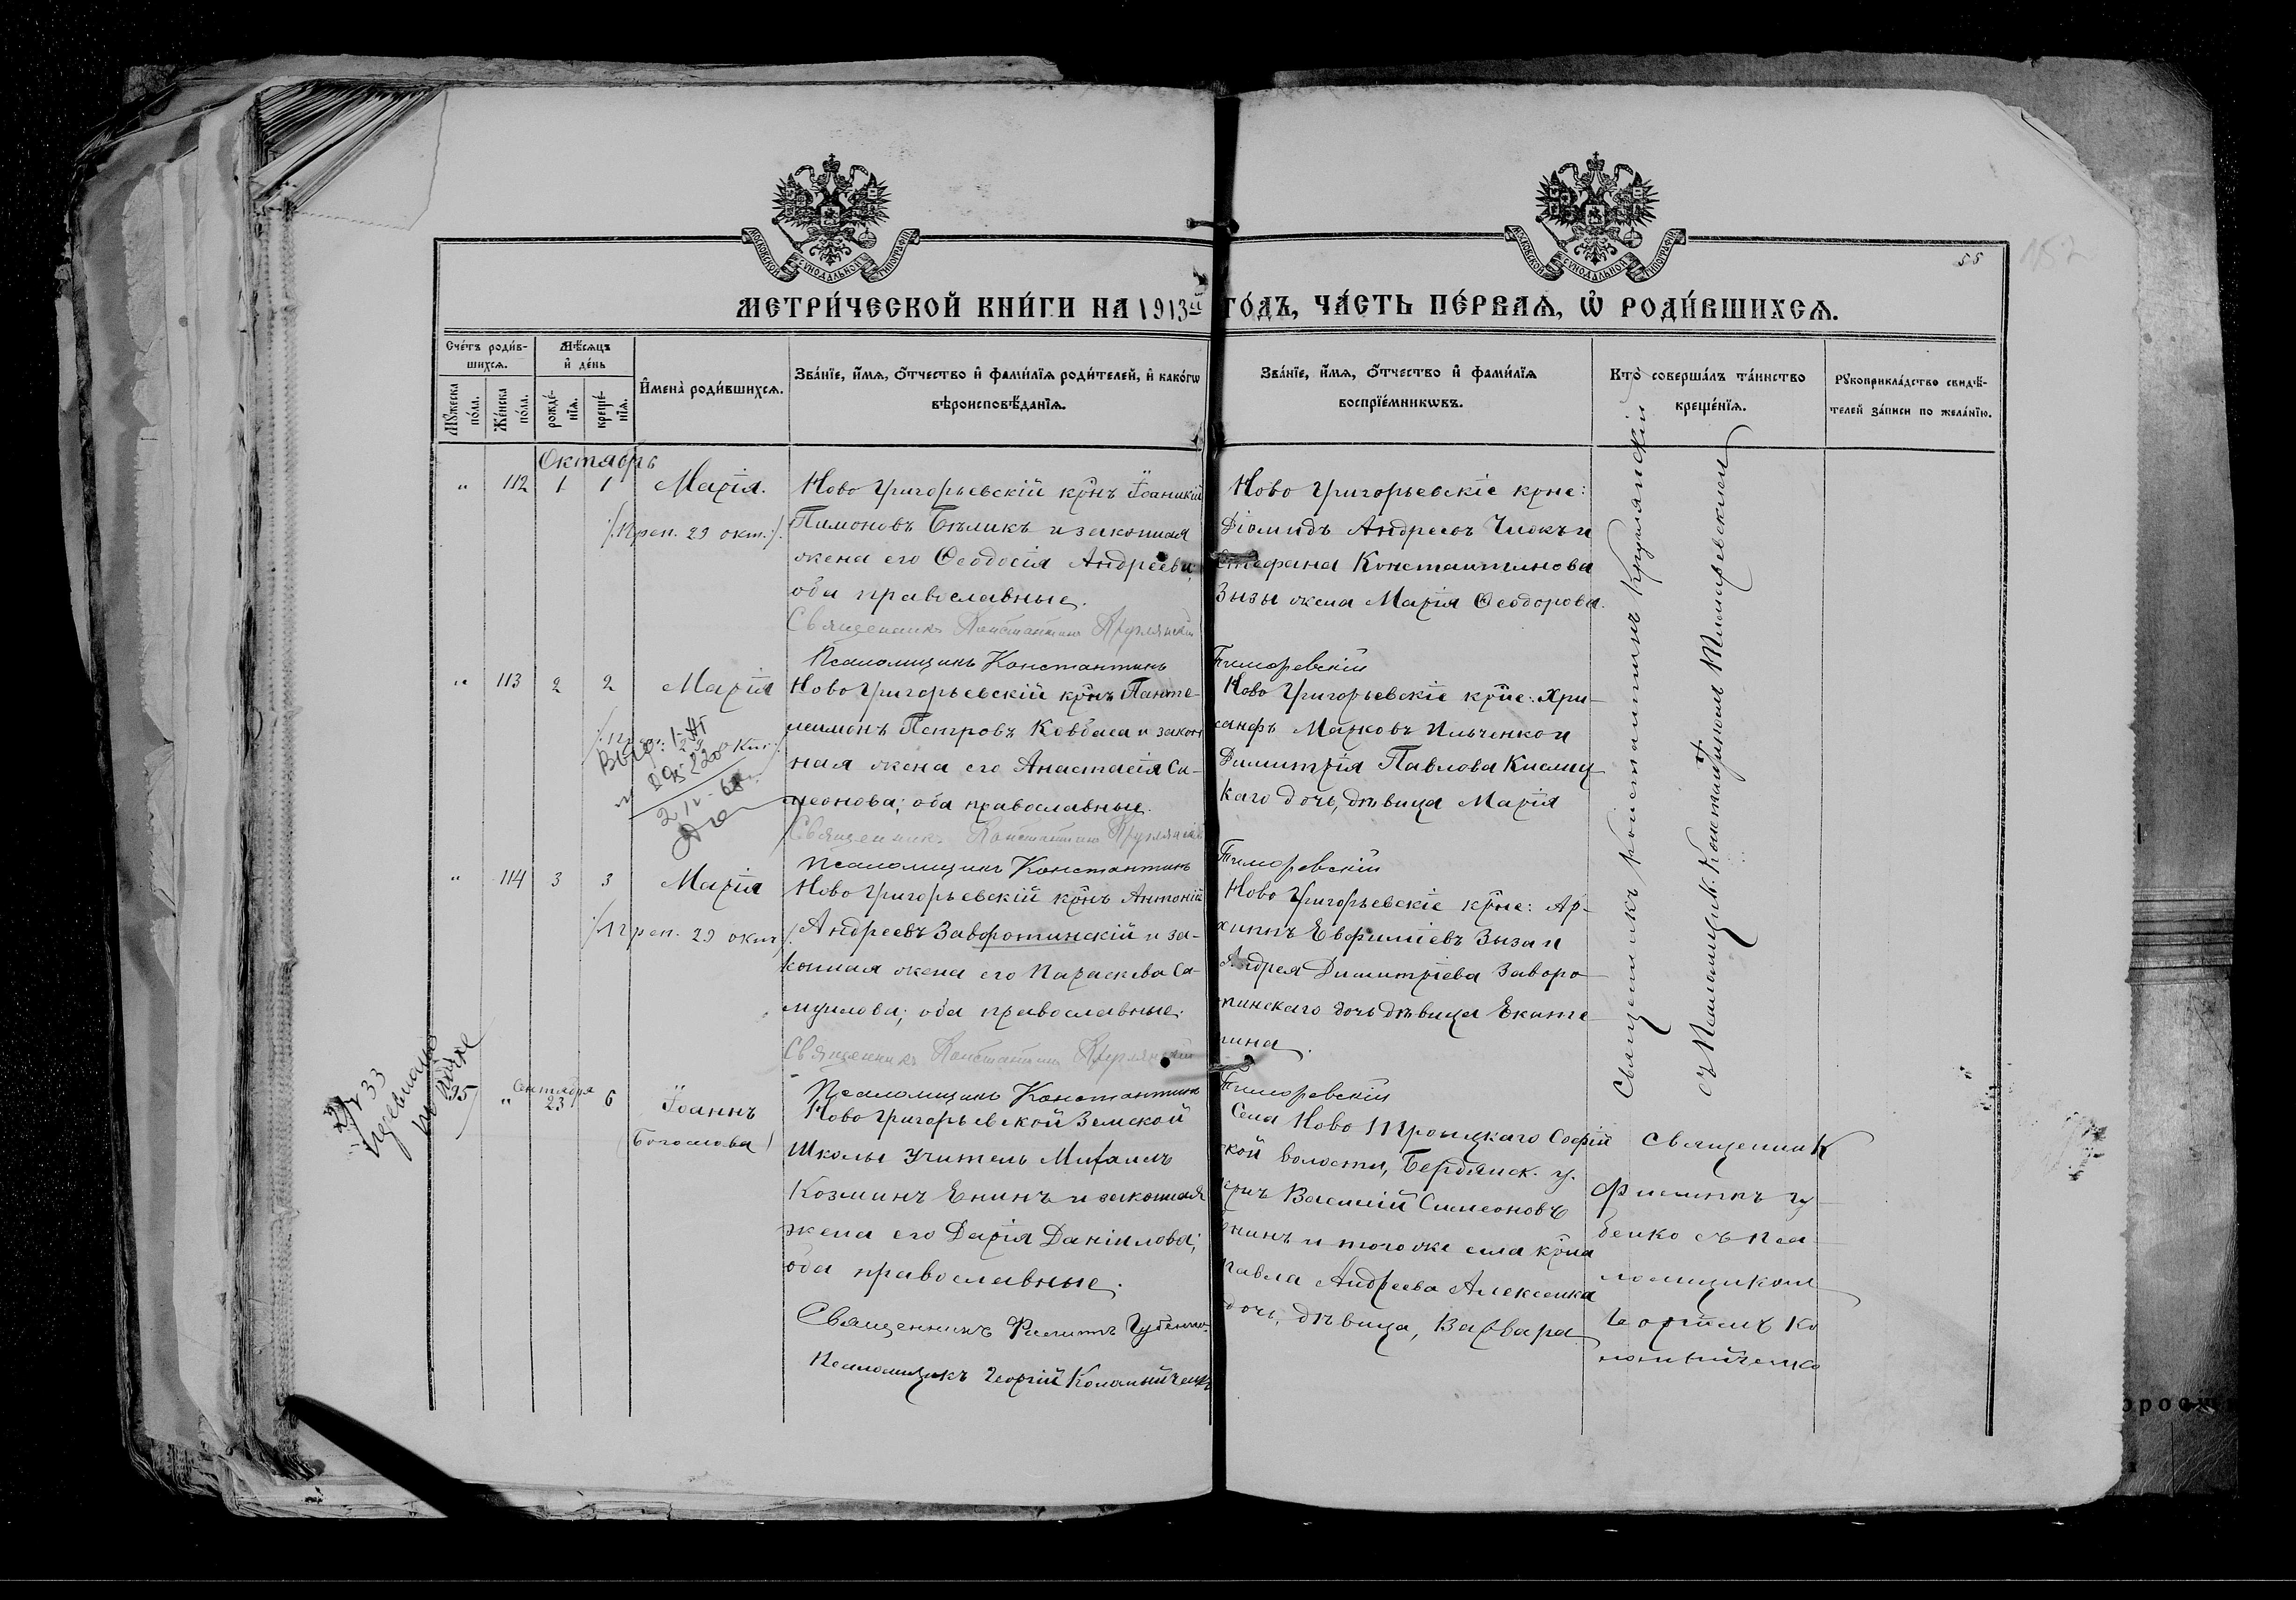 55
152
МЕТРИ́ЧЕСКОЙ КНИ́ГИ НА 1913й ГО́ДЪ, ЧА́СТЬ ПЕ́РВАѦ, Ѡ҆ РОДИ́ВШИХСѦ.
Сче́тъ роди́в-
шихсѧ.
Мꙋ́жеска по́ла.
Же́нска по́ла.
Мѣ́сѧцъ
и҆ де́нь
рожде́-
нїѧ.
креще́-
нїѧ.
И҆мена̀ роди́вшихсѧ.
Зва́нїе, и҆́мѧ, о҆́тчество и҆ фами́лїѧ роди́телей, и҆ како́гѡ
вѣроисповѣ́данїѧ.
Зва́нїе, и҆́мѧ, о҆́тчество и҆ фами́лїѧ
воспрїе́мникѡвъ.
Кто̀ соверша́лъ та́инство
креще́нїѧ.
Рꙋкоприкла́дство свидѣ́-
телей за́писи по жела́нїю.
Октябрь
" 112 1 1 Марія.
/:Преп. 29 окт.:/.
Ново Григорьевскій крнъ Іоаникій
Пимоновъ Бѣликъ и законная
жена его Ѳеодосія Андреева;
оба православные.
Священникъ Константинъ Крулянскій
Псаломщикъ Константинъ Тиморевскій
Ново Григорьевскіе крне:
Діомидъ Андреевъ Чижъ и
Стефана Константинова
Зызы жена Марія Ѳеодорова.
" 113 2 2 Марія
Ново Григорьевскій крнъ Панте-
леимонъ Петровъ Ковбаса и закон
ная жена его Анастасія Си-
меонова; оба православные.
Священникъ Константинъ Крулянскій
Псаломщикъ Константинъ Тиморевскій
Ново Григорьевскіе крне: Хри-
санфъ Марковъ Ильченко и
Димитрія Павлова Кислиц-
каго дочь, дѣвица Марія
" 114 3 3 Марія
/Преп. 29 окт/.
Ново Григорьевскій крнъ Антоній
Андреевъ Заворотинскій и за-
конная жена его Параскева Са-
муилова; оба православные.
Священникъ Константинъ Крулянскій
Псаломщикъ Константинъ Тиморевскій
Ново Григорьевскіе крне: Ар-
хиппъ Евфиміевъ Зыза и
Андрея Димитріева Заворо-
тинскаго дочь дѣвица Екате-
рина.
Священникъ Константинъ Крулянскій
съ Псаломщик. Константиномъ Тиморевскимъ
95 " Сентября 23 6 Іоаннъ
(Богослова)
Ново Григорьевской Земской
Школы Учитель Михаилъ
Козминъ Енинъ и законная
жена его Дарія Даніилова;
оба православные.
Священникъ Филиппъ Губенко.
Псаломщикъ Георгій Коломыйченко
Села Ново Троицкаго Софій
ской волости, Бердянск. у.
крнъ Василій Симеоновъ
Енинъ и того же села крна
Павла Андреева Алексенка
дочь, дѣвица, Варвара
Священник
Филиппъ Гу
бенко съ пса
ломщиком
Георгіемъ Ко
ломыйченко